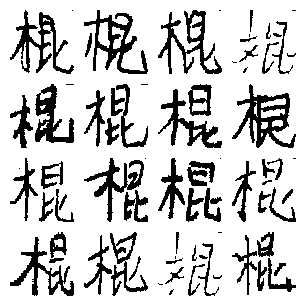 棍棍棍棍
棍棍棍棍
棍棍棍棍
棍棍棍棍